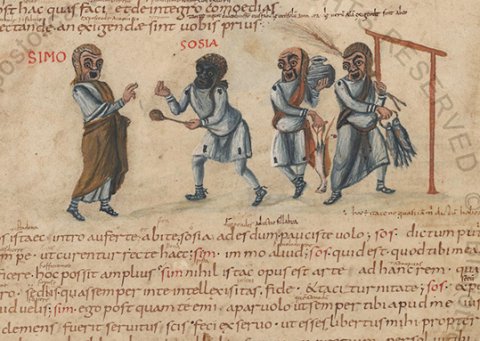 ost haec quas faci, et deintegro comoedias
ectandae an exigendae sint uobis prius:
SIMO SOSIA
os istaec intro auferte; abite, sosia, ades dum paucis te uolo; sos. dictum pu
m pe. ut curentur recte haec; sim. immo aliud; sos. quid est quod tibi mea
ficere hoc possit amplius sim nihil istac opus est arte ad hanc rem. qua
ro. sed his quas semper inte intellexi sitas. fide. & taciturnitate; sos. ex
uid uelis; sim. ego postquam te emi. aparuolo ut semper tibi apud me ius
clemens fuerit seruitus scis. feci ex seruo. ut esses libertus mihi propter
RESERVED